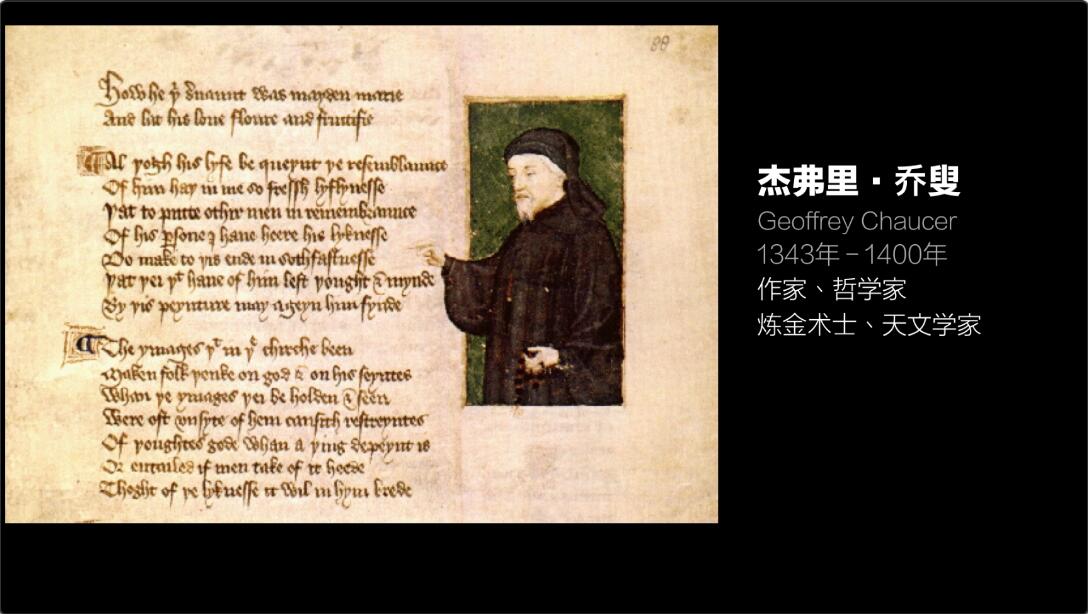 88
How he þͭ s̉uaunt was mayden marie
And lat his loue floure and fructifie
Al þogh his lyfe be queynt þe resemblaunce
Of him haþ in me so fressh lyflynesse
Þat to putte othir men in remembraunce
Of his ꝑsone I haue heere his lyknesse
Do make to þis ende in sothfastnesse
Þat þei þͭ haue of him left þought & mynde
By þis peynture may ageyn him fynde
The ymages þͭ in þͤ chirche been
Maken folk þenke on god & on his seyntes
Whan þe ymages þei be holden & seen
Were oft vnsyte of hem causith restreyntes
Of þoughtes gode whan a þing depeynt is
Or entailed if men take of it heede
Thoght of þe lyknesse it wil in hym brede
杰弗里·乔叟
Geoffrey Chaucer
1343年－1400年
作家、哲学家
炼金术士、天文学家